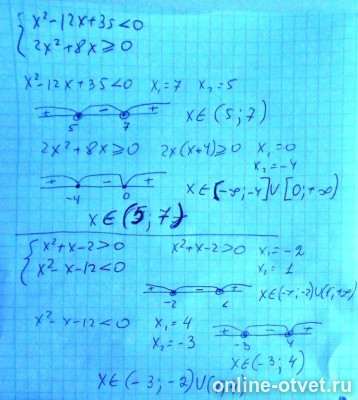 { x²-12x+35<0
2x²+8x≥0
x²-12x+35<0 x₁=7 x₂=5
+ - +
5 7
x∈(5;7)
2x²+8x≥0 2x(x+4)≥0 x₁=0
x₂=-4
+ - +
-4 0
x∈[-∞;-4]∪[0;+∞)
x∈(5;7)
{ x²+x-2>0 x²+x-2>0 x₁=-2
x²-x-12<0 x₁=1
+ - +
-2 1
x∈(-∞;-2)∪(1;+∞)
x²-x-12<0 x₁=4
x₂=-3
+ - +
-3 4
x∈(-3;4)
x∈(-3;-2)∪
online-otvet.ru